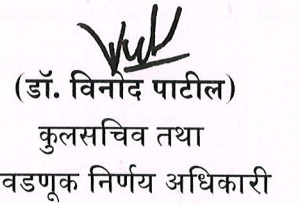 (डॉ. विनोद पाटील)
कुलसचिव तथा
वडणूक निर्णय अधिकारी